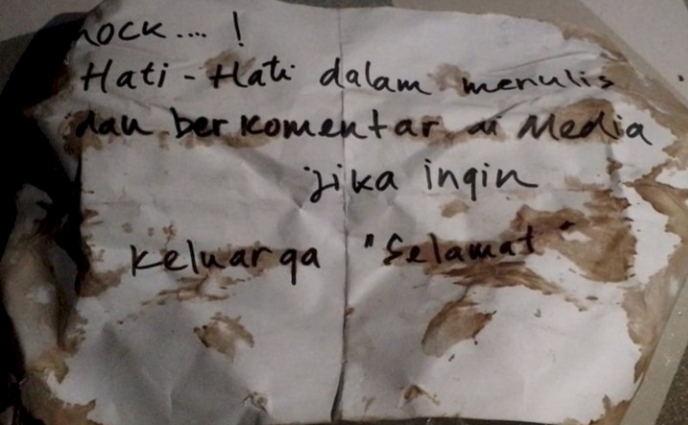 ...! 
Hati-Hati dalam menulis
dan berkomentar di Media
jika ingin
keluarga "Selamat"